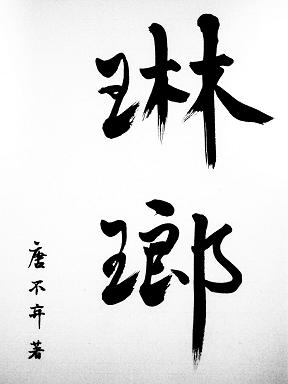 琳
瑯
唐不弃著